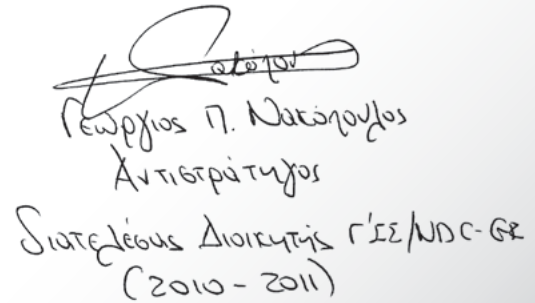 Γεώργιος Π. Νακόπουλος
Αντιστράτηγος
Διατελέσας Διοικητής Γ'ΣΣ/NDC-GR
(2010 - 2011)